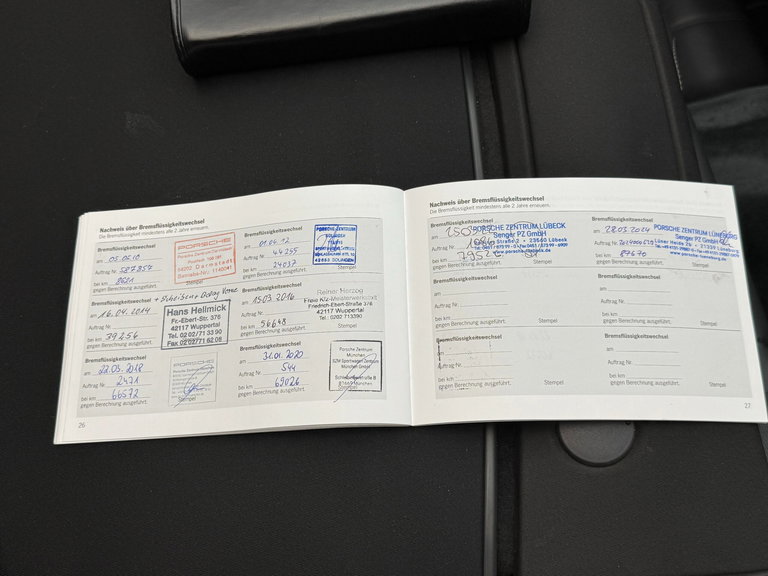 Nachweis über Bremsflüssigkeitswechsel
Die Bremsflüssigkeit mindestens alle 2 Jahre erneuern.
Bremsflüssigkeitswechsel
am 05.05.10
Auftrag Nr. 587854
bei km 8621
gegen Berechnung ausgeführt.
PORSCHE
Darmstadt
Stempel
Bremsflüssigkeitswechsel
am 01.04.12
Auftrag Nr. 44255
bei km 24037
gegen Berechnung ausgeführt.
PORSCHE ZENTRUM
SOLINGEN
Stempel
Bremsflüssigkeitswechsel
am 16.04.2014
Auftrag Nr.
bei km 39256
gegen Berechnung ausgeführt.
Hans Hellmick
Fr.-Ebert-Str. 376
42117 Wuppertal
Tel. 02 02/71 33 90
Fax 02 02/71 62 08
Bremsflüssigkeitswechsel
am 15.03.2016
Auftrag Nr.
bei km 56648
gegen Berechnung ausgeführt.
Reiner Herzog
Freie Kfz-Meisterwerkstatt
Friedrich-Ebert-Straße 376
42117 Wuppertal
Tel. 0202 713390
Stempel
Bremsflüssigkeitswechsel
am 22.03.2018
Auftrag Nr. 2471
bei km 66572
gegen Berechnung ausgeführt.
PORSCHE
Stempel
Bremsflüssigkeitswechsel
am 31.01.2020
Auftrag Nr. 544
bei km 69026
gegen Berechnung ausgeführt.
Porsche Zentrum
München
SZM Sportwagen Zentrum
München GmbH
München
Stempel
26
Nachweis über Bremsflüssigkeitswechsel
Die Bremsflüssigkeit mindestens alle 2 Jahre erneuern.
am
Auftrag Nr.
bei km
gegen Berechnung ausgeführt.
PORSCHE ZENTRUM LÜBECK
Senger PZ GmbH
23560 Lübeck
Stempel
Bremsflüssigkeitswechsel
am 28.03.2024
Auftrag Nr.
bei km 87670
gegen Berechnung ausgeführt.
PORSCHE ZENTRUM LÜNEBURG
Senger PZ GmbH
21339 Lüneburg
Stempel
Bremsflüssigkeitswechsel
am
Auftrag Nr.
bei km
gegen Berechnung ausgeführt.
Stempel
Bremsflüssigkeitswechsel
am
Auftrag Nr.
bei km
gegen Berechnung ausgeführt.
Stempel
Bremsflüssigkeitswechsel
am
Auftrag Nr.
bei km
gegen Berechnung ausgeführt.
Stempel
Bremsflüssigkeitswechsel
am
Auftrag Nr.
bei km
gegen Berechnung ausgeführt.
Stempel
27